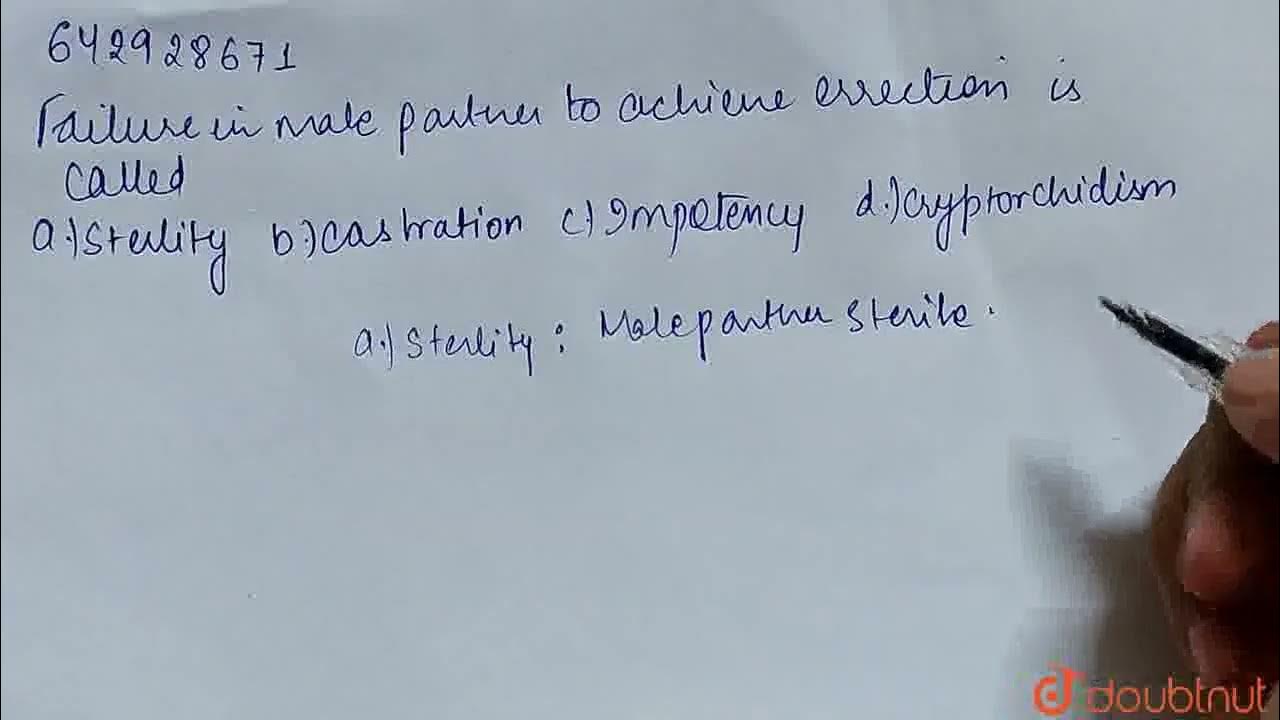 642928671
Failure in male partner to achieve errection is
called
a.) Sterlity b.) castration c.) Impotency d.) cryptorchidism
a.) Sterlity : Male partner sterile.
doubtnut